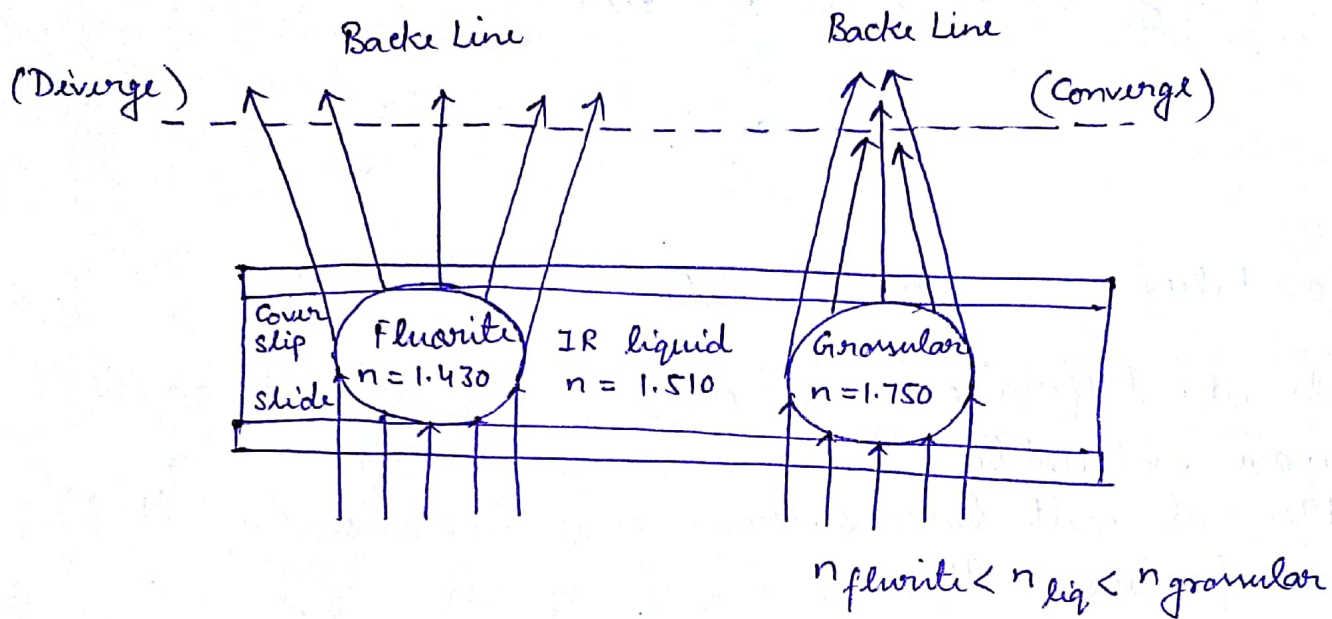 Backe Line
Backe Line
(Diverge)
(Converge)
Cover
slip
slide
Fluorite
n = 1.430
IR liquid
n = 1.510
Grossular
n = 1.750
n flurite < n liq < n grossular